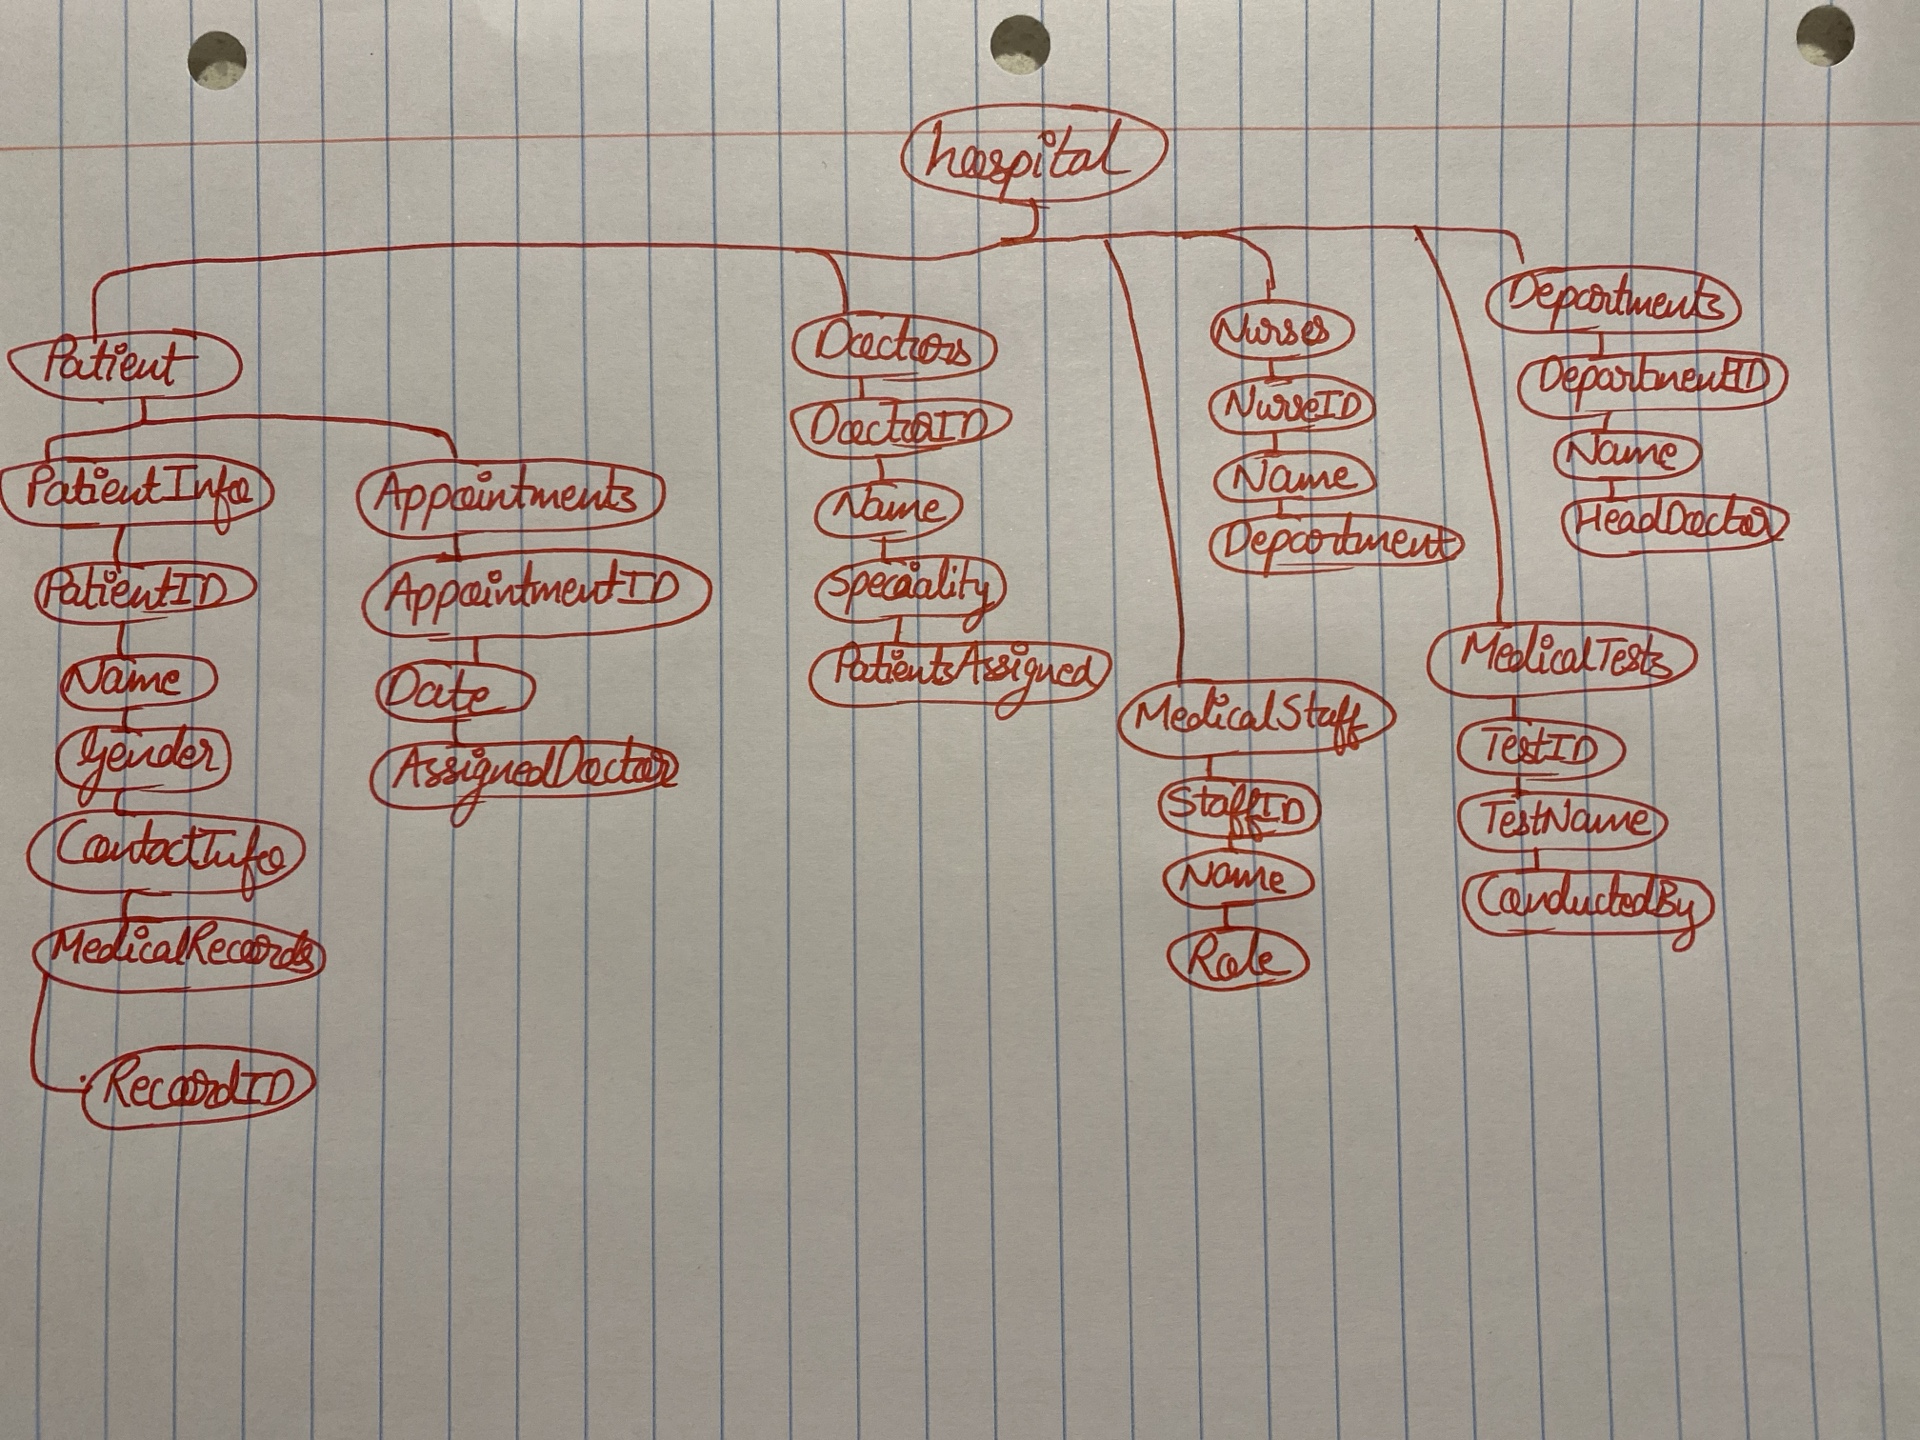 hospital
Patient
PatientInfo
PatientID
Name
Gender
ContactInfo
MedicalRecords
RecordID
Appointments
AppointmentID
Date
AssignedDoctor
Doctors
DoctorID
Name
Speciality
PatientsAssigned
MedicalStaff
StaffID
Name
Role
Nurses
NurseID
Name
Department
MedicalTests
TestID
TestName
ConductedBy
Departments
DepartmentID
Name
HeadDoctor